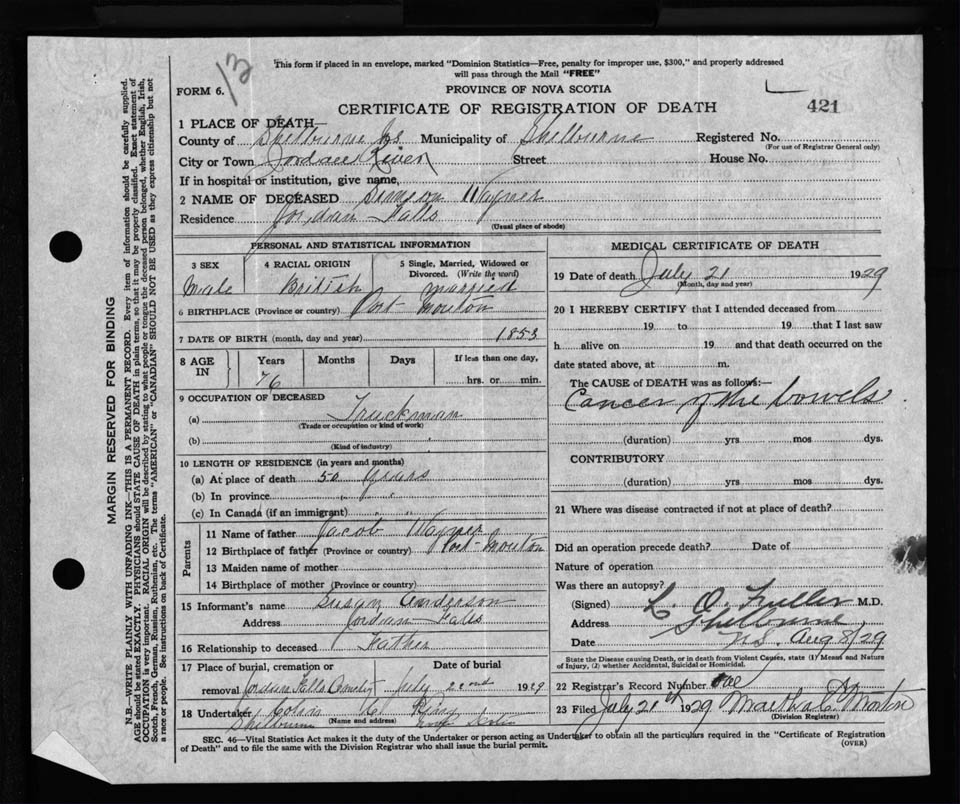 13
This form if placed in an envelope, marked "Dominion Statistics—Free, penalty for improper use, $300," and properly addressed
will pass through the Mail "FREE"
FORM 6.
PROVINCE OF NOVA SCOTIA
CERTIFICATE OF REGISTRATION OF DEATH
421
1 PLACE OF DEATH—
County of Shelburne Municipality of Shelburne Registered No.
(For use of Registrar General only)
City or Town Jordan River Street House No.
If in hospital or institution, give name,
2 NAME OF DECEASED Simeon Wagner
Residence Jordan Falls
(Usual place of abode)
PERSONAL AND STATISTICAL INFORMATION
3 SEX 4 RACIAL ORIGIN 5 Single, Married, Widowed or
Divorced. (Write the word)
Male British married
6 BIRTHPLACE (Province or country) Port Mouton
7 DATE OF BIRTH (month, day and year) 1853
8 AGE IN Years Months Days If less than one day,
76 hrs. or min.
9 OCCUPATION OF DECEASED
(a) Truckman
(Trade or occupation or kind of work)
(b)
(Kind of industry)
10 LENGTH OF RESIDENCE (in years and months)
(a) At place of death 50 years
(b) In province " "
(c) In Canada (if an immigrant)
Parents
11 Name of father Jacob Wagner
12 Birthplace of father (Province or country) Port-Mouton
13 Maiden name of mother
14 Birthplace of mother (Province or country)
15 Informant's name Susan Anderson
Address Jordan Falls
16 Relationship to deceased Father
17 Place of burial, cremation or Date of burial
removal Jordan Falls Cemetery July 22nd 1929
18 Undertaker
(Name and address)
Shelburne
MEDICAL CERTIFICATE OF DEATH
19 Date of death July 21 1929
(Month, day and year)
20 I HEREBY CERTIFY that I attended deceased from
19 to 19 that I last saw
h alive on 19 and that death occurred on the
date stated above, at m.
The CAUSE OF DEATH was as follows:—
Cancer of the bowels
(duration) yrs mos dys.
CONTRIBUTORY
(duration) yrs mos dys.
21 Where was disease contracted if not at place of death?
Did an operation precede death? Date of
Nature of operation
Was there an autopsy?
(Signed) L. O. Fuller M.D.
Address Shelburne,
Date N.S. Aug 8/29
State the Disease causing Death, or in death from Violent Causes, state (1) Means and Nature
of Injury, (2) whether Accidental, Suicidal or Homicidal.
22 Registrar's Record Number one
23 Files July 21st 1929 Martha C. Morton
(Division Registrar)
SEC. 46—Vital Statistics Act makes it the duty of the Undertaker or person acting as Undertaker to obtain all the particulars required in the "Certificate of Registration
of Death" and to file the same with the Division Registrar who shall issue the burial permit.
(OVER)
MARGIN RESERVED FOR BINDING
N.B.—WRITE PLAINLY WITH UNFADING INK—THIS IS A PERMANENT RECORD. Every item of information should be carefully supplied.
AGE should be stated EXACTLY. PHYSICIANS should STATE CAUSE OF DEATH in plain terms, so that it may be properly classified. Exact statement of
OCCUPATION is very important. RACIAL ORIGIN will be described by stating to what people or tongue the deceased person belonged, whether English, Irish,
Scotch, French, German, Russian, Ruthenian, etc. The terms "AMERICAN" or "CANADIAN" SHOULD NOT BE USED as they express citizenship but not
a race or people. See instructions on back of Certificate.